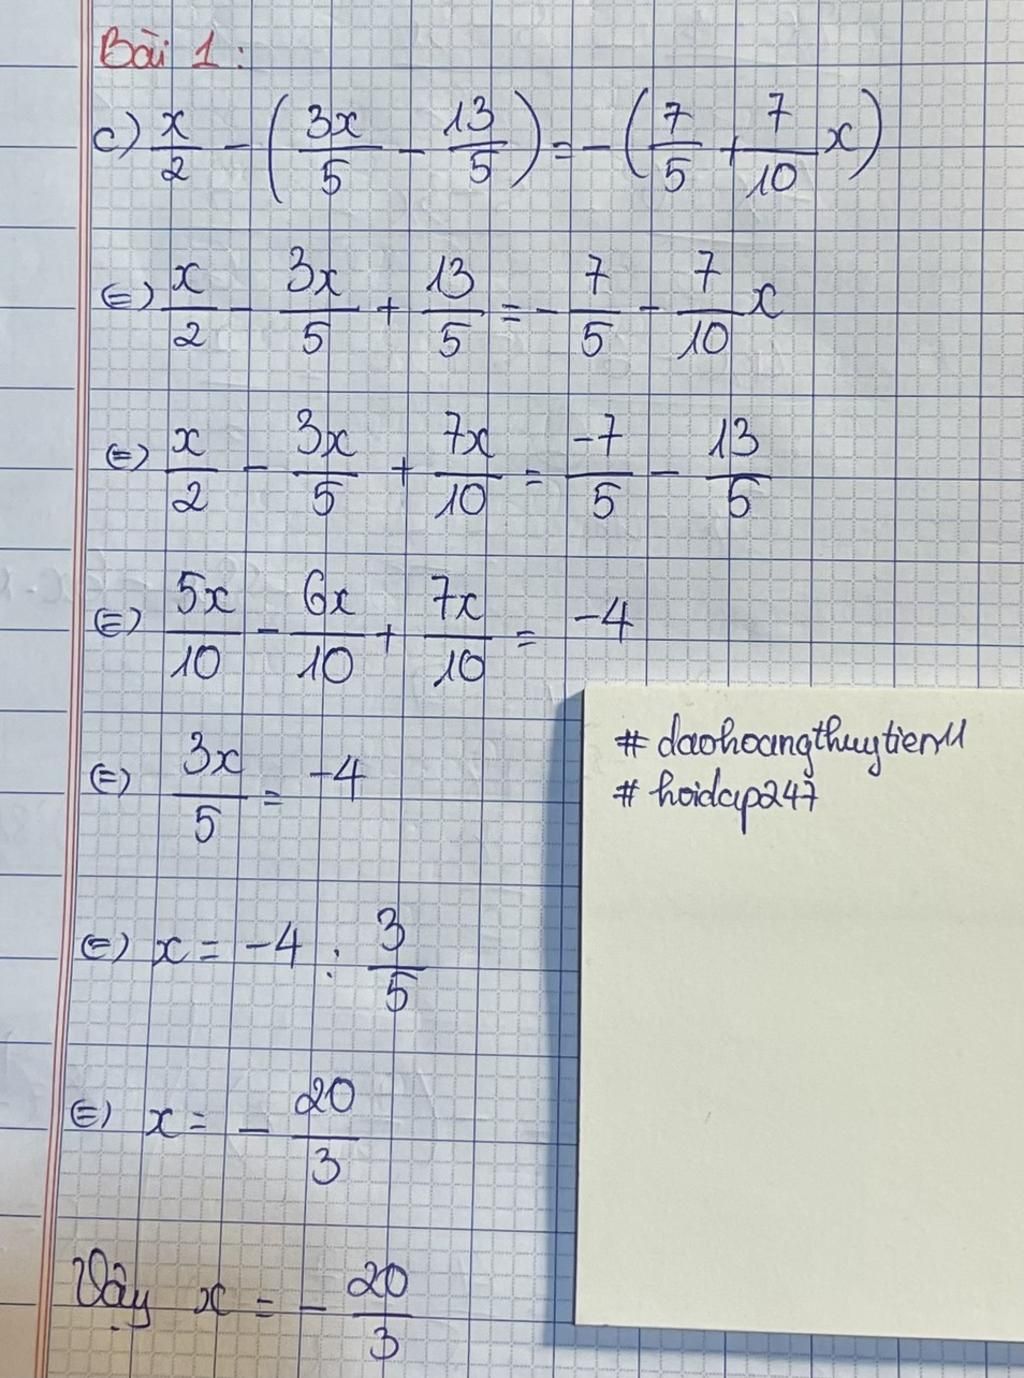 Bài 1:
c) x/2 - (3x/5 - 13/5) = -(7/5 + 7/10 x)
⇔) x/2 - 3x/5 + 13/5 = - 7/5 - 7/10 x
⇔) x/2 - 3x/5 + 7x/10 = -7/5 - 13/5
⇔) 5x/10 - 6x/10 + 7x/10 = -4
⇔) 3x/5 = -4
⇔) x = -4 : 3/5
⇔) x = - 20/3
Vậy x = - 20/3
# daohoangthuytien11
# hoidap247